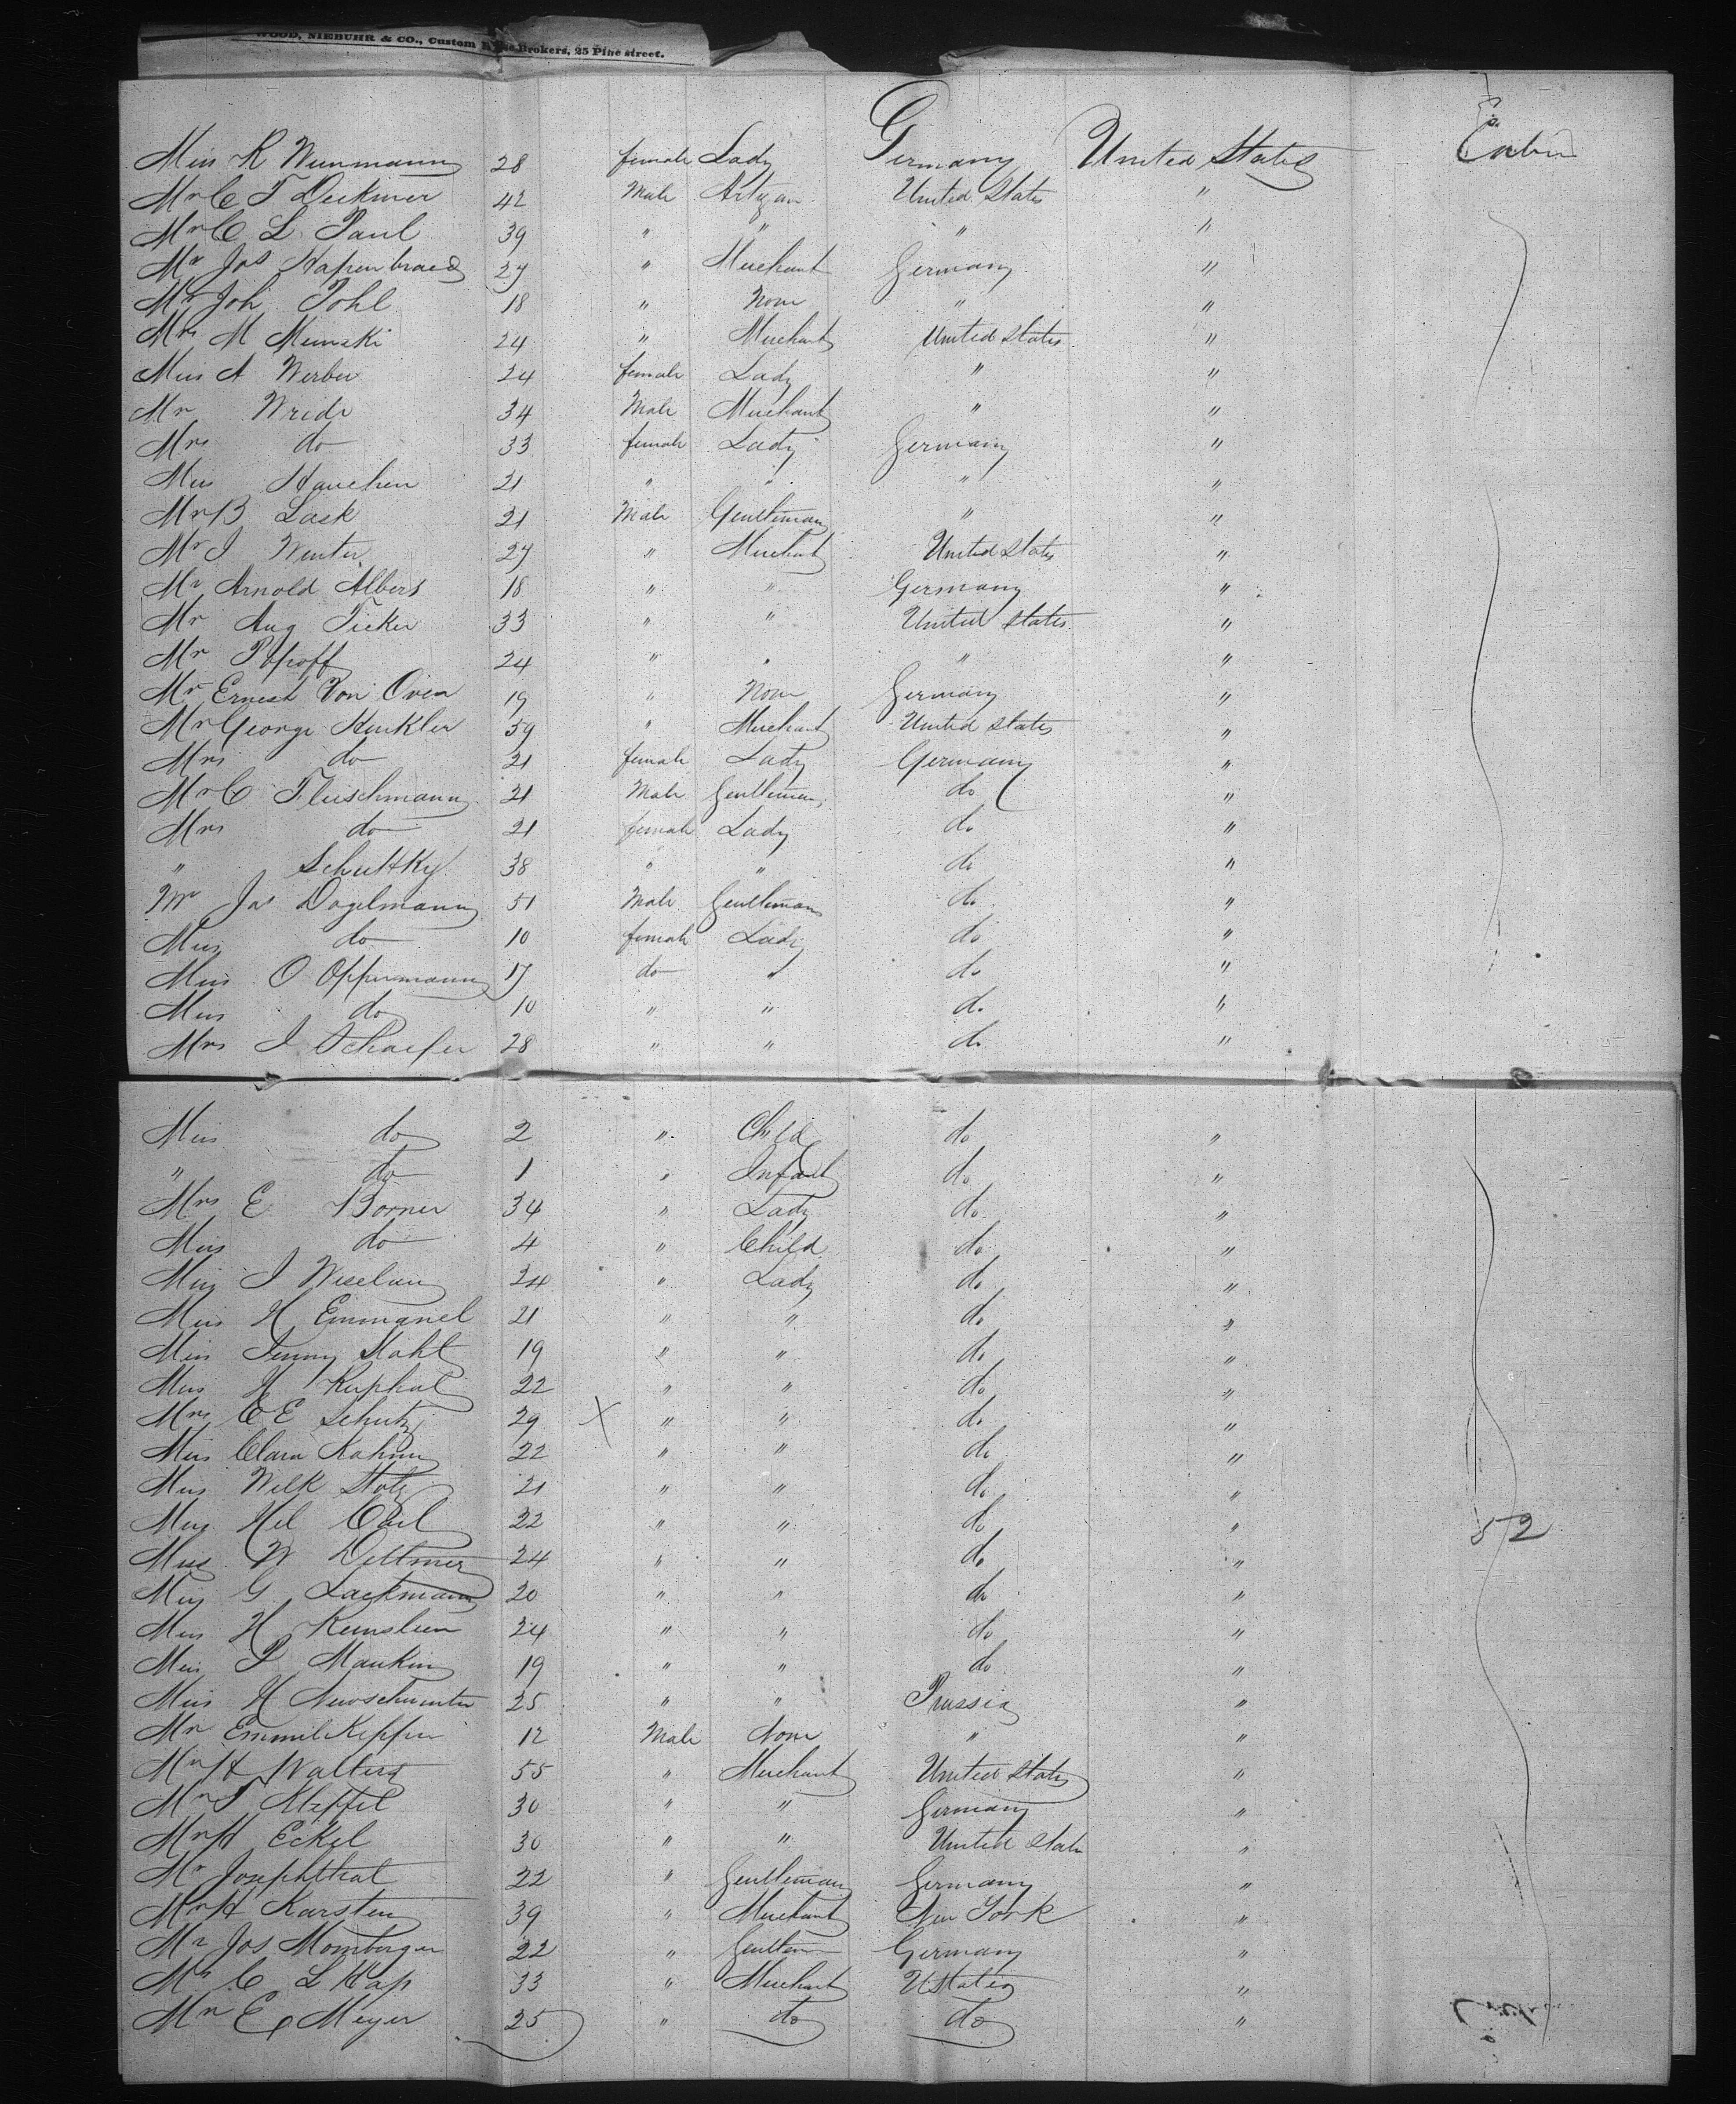 WOOD, NIEBUHR & CO., Custom Brokers, 25 Pine street.
Miss R 28 female Lady Germany United States Cabin
Mr C F Deckmer 42 Male Artizan United States "
Mr C L Paul 39 " " " "
Mr Jos 27 " Merchant Germany "
Mr Joh Pohl 18 " None " "
Mrs M Meinski 24 " Merchant United States "
Miss A Werber 24 female Lady " "
Mr Wride 34 Male Merchant " "
Mrs do 33 female Lady Germany "
Miss Hanchen 21 " " " "
Mr B Lask 21 Male Gentleman " "
Mr I Winter 27 " Merchant United States "
Mr Arnold Albers 18 " " Germany "
Mr Aug Ficker 33 " " United States "
Mr Popoff 24 " " " "
Mr Ernest Von Oven 19 " None Germany "
Mr George Kunkler 59 " Merchant United States "
Mrs do 21 female Lady Germany "
Mr C Fleischmann 21 Male Gentleman do "
Mrs do 21 female Lady do "
" Schuttky 38 " " do "
Mr Jos Dogelmann 51 Male Gentleman do "
Miss do 10 female Lady do "
Miss O Oppermann 17 do " do "
Miss do 10 " " do "
Mrs I Schaefer 28 " " do "
Miss do 2 " Child do "
" do 1 " Infant do "
Mrs E Borner 34 " Lady do "
Miss do 4 " Child do "
Miss I 24 " Lady do "
Miss H Emmanel 21 " " do "
Miss Jenny Stahl 19 " " do "
Miss H Ruphal 22 " " do "
Mrs C E Schutz 29 X " " do "
Miss Clara Kahnn 22 " " do "
Miss Wilk Stotz 21 " " do "
Miss Hel Carl 22 " " do " 52
Miss W Dettmer 24 " " do "
Miss G Lackmann 20 " " do "
Miss H 24 " " do "
Miss P Mankin 19 " " do "
Miss H 25 " " Prussia "
Mr Emmil Keppen 12 Male None " "
Mr H Walters 55 " Merchant United States "
Mr T Kleffel 30 " " Germany "
Mr H Eckel 30 " " United States "
Mr Josephthal 22 " Gentleman Germany "
Mr H Karsten 39 " Merchant New York "
Mr Jos Momberger 22 " Gentlem Germany "
Mr C L Kap 33 " Merchant U States "
Mr E Meyer 25 " do do "